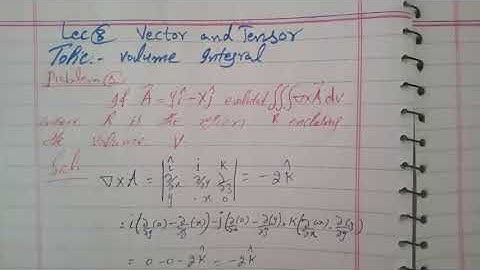 Lec 8 Vector and Tensor
Topic:- Volume Integral
Problem
If A⃗ = yî - xĵ evaluted ∭ ∇×A⃗ dv
where R is the region R enclosing
the volume V.
Sol
∇×A = | î j k̂ ; ∂/∂x ∂/∂y ∂/∂z ; y -x 0 | = -2k̂
= i(∂/∂y(0) - ∂/∂z(x)) - j(∂/∂x(0) - ∂/∂z(y)) + k(∂/∂x(x) - ∂/∂y(y))
= 0 - 0 - 2k̂ = -2k̂